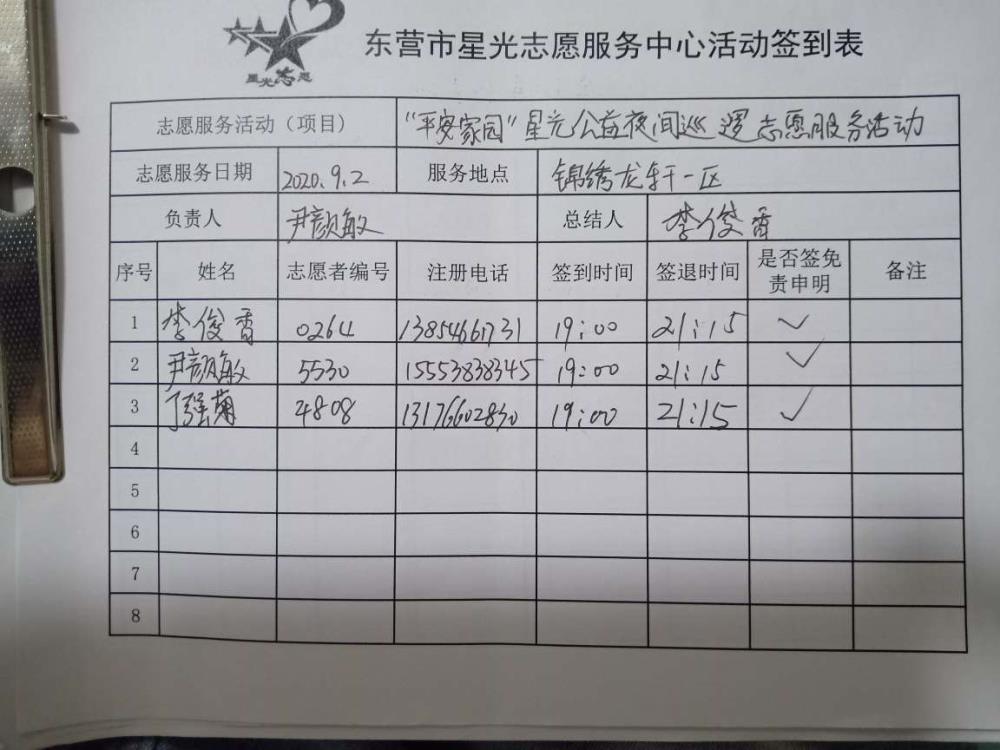 星光志愿
东营市星光志愿服务中心活动签到表
志愿服务活动（项目） "平安家园"星光公益夜间巡逻志愿服务活动
志愿服务日期 2020.9.2 服务地点 锦绣龙轩一区
负责人 尹颜敏 总结人 李俊香
序号 姓名 志愿者编号 注册电话 签到时间 签退时间 是否签免责申明 备注
1 李俊香 0264 13854661731 19:00 21:15 ✓
2 尹颜敏 5530 15553838345 19:00 21:15 ✓
3 丁强菊 4808 13176602830 19:00 21:15 ✓
4
5
6
7
8